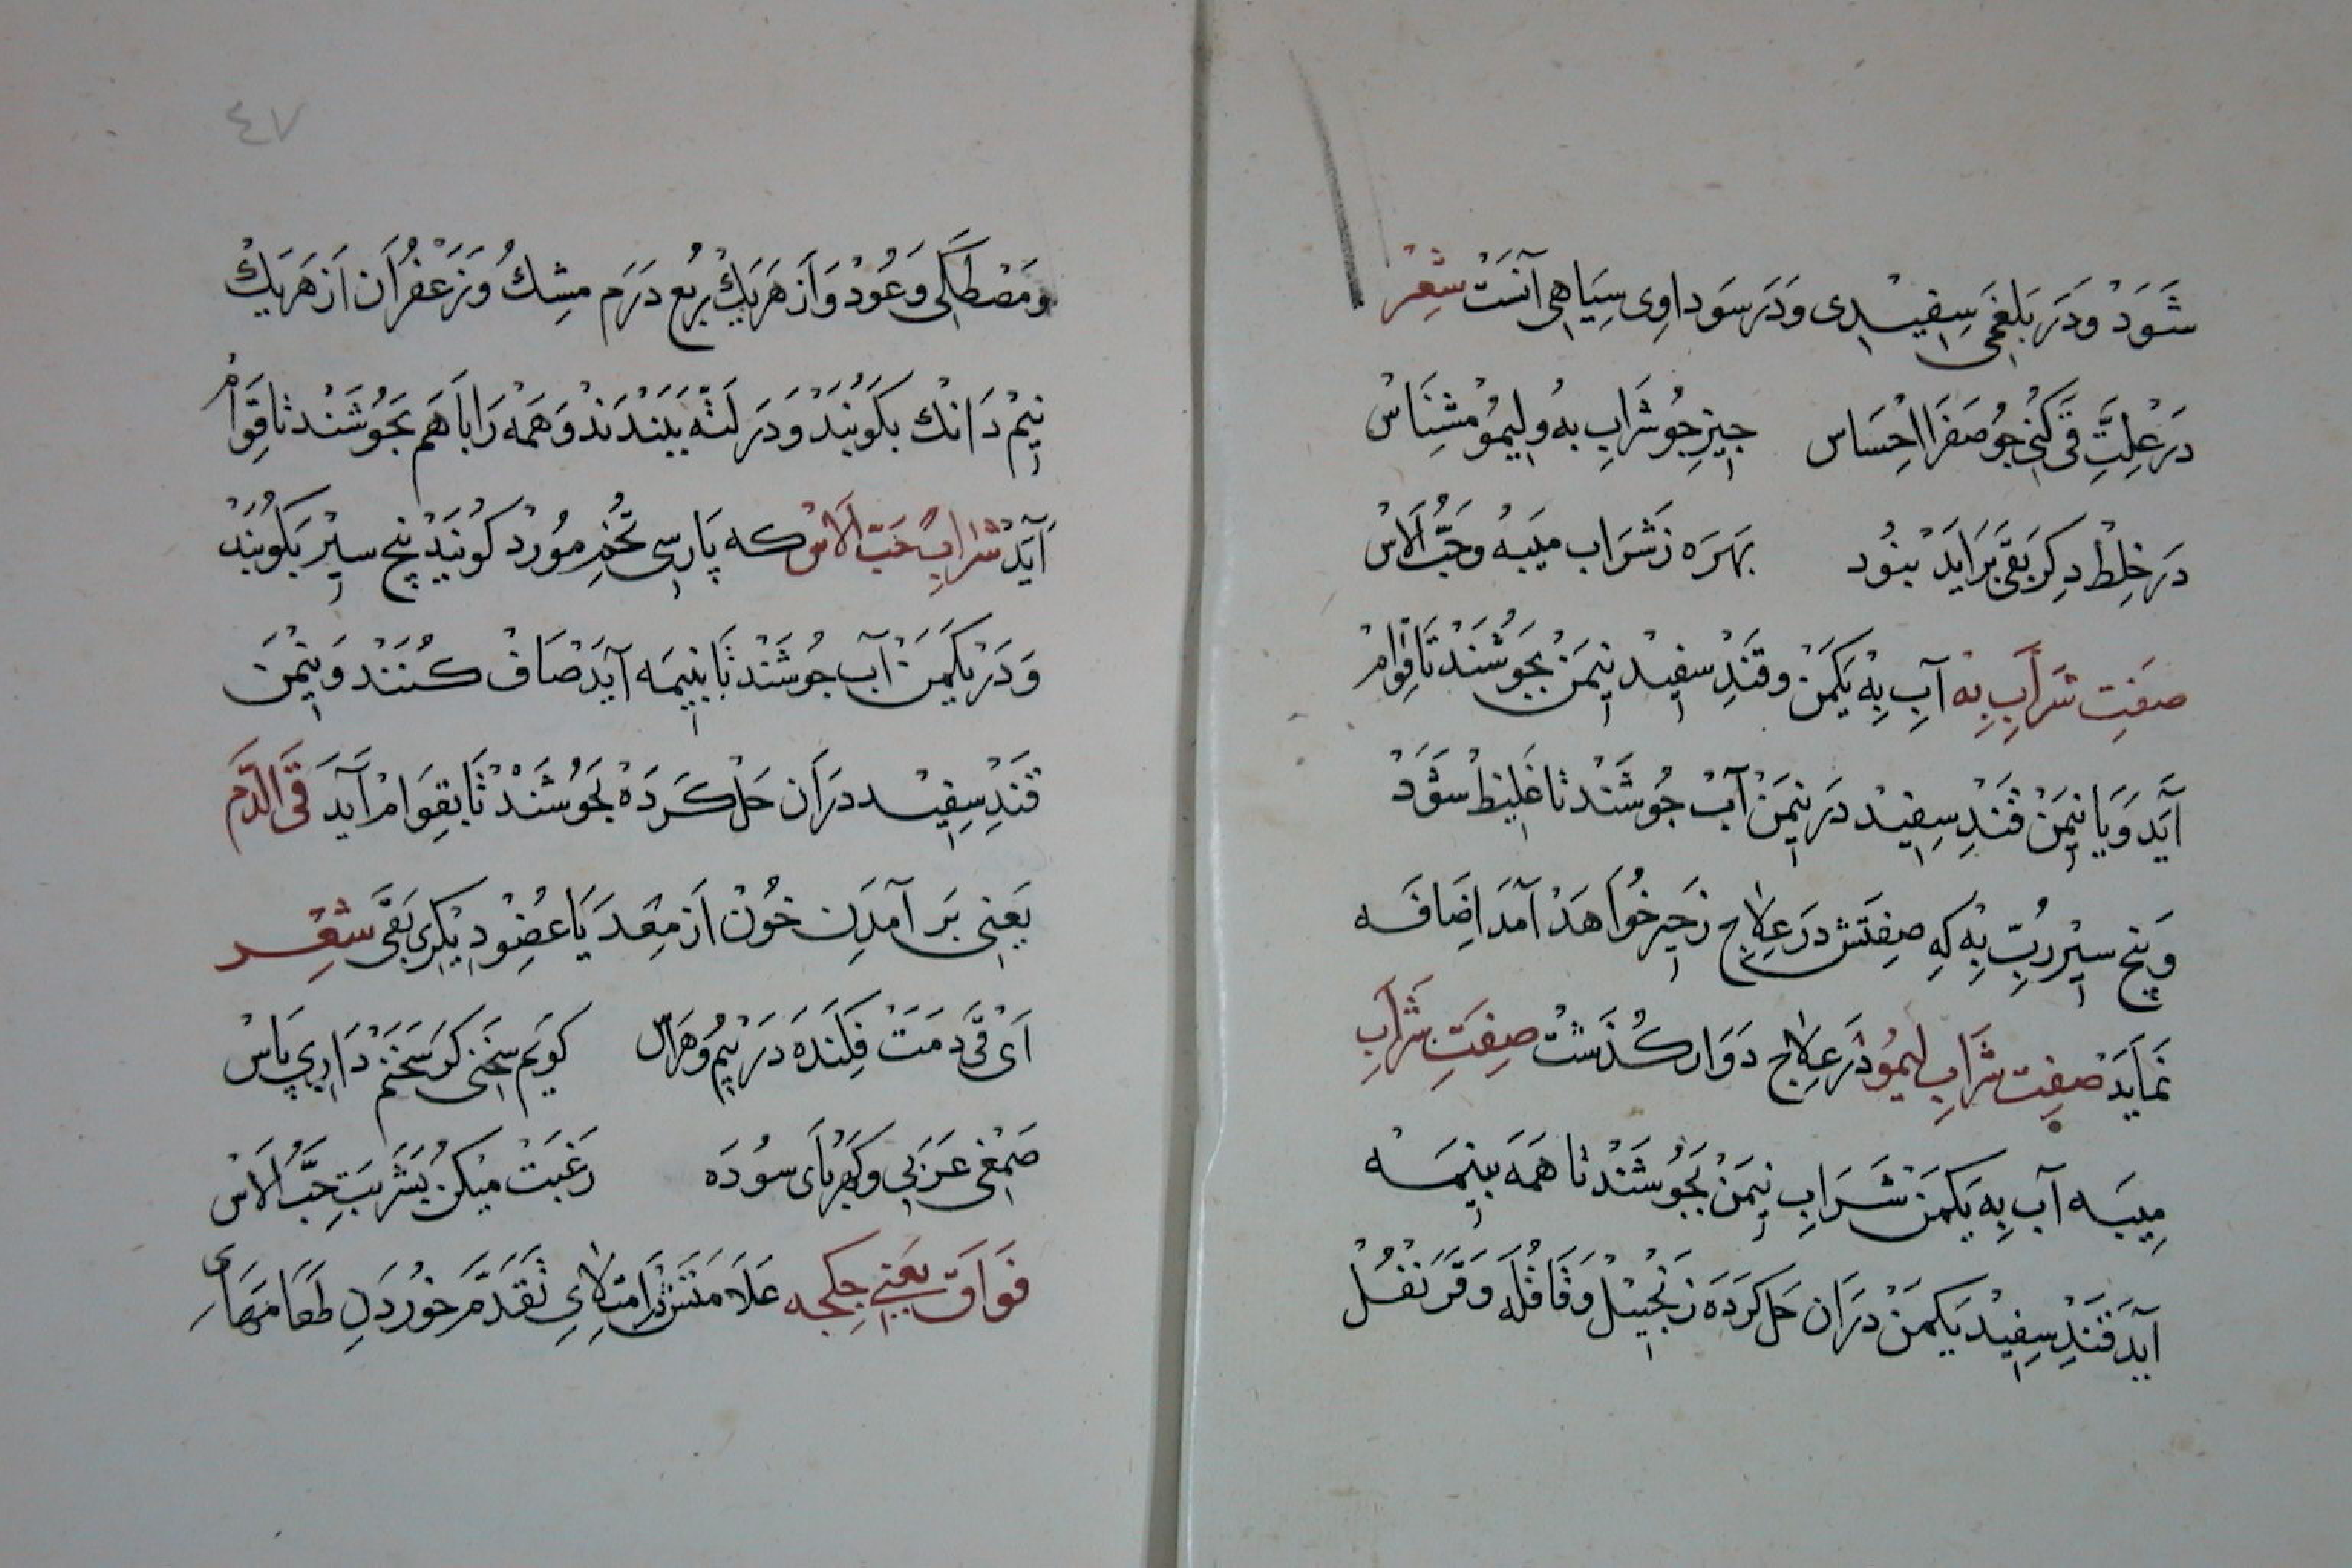 شَوَدْ وَدَرَ بَلغَمِی سِفیْدِی وَدَرَ سَوداوِی سِیَاهِی آنَسَتْ شِعْرْ
دَرَعِلِتِّ قَی کُنِی جُو صَفرَا احِسَاس جِیزِ جُو شَرَابِ بِهُ وَلِیمُو مشِنَاسْ
دَرَ خِلِطْ دِکِرَ بَقَی بَرَایَدْ بنوُد بَهَرَه زِشَرَاب مَیبَهُ وَحَبُّ الآسْ
صِفَتِ شَرَابِ بِهْ آبِ بِهْ یَکمَنْ وقَندِ سفِیدْ نِیمَنْ بجَوُشَندْ تَا قِوَامْ
آیَد وَیَا نِیمَنْ قَندِ سِفِیدْ دَرَ نِیمَنْ آبْ جُوشَندْ تا غَلِیظْ شَوَدْ
وَپنج سِیْر رُبِّ بِهْ کِهِ صِفِتَش دَرَ عِلاجِ زَحِیر خُواهَدْ آمَدَ اضَافَه
نَمایَدْ صِفِت شَرَابِ لیمُو دَرَ عِلاجِ دَوَار کُذَشتْ صِفِتِ شَرَابِ
مِیبَه آبِ بِهِ یَکمَنْ شَرَابِ نِیمَنْ بجَوُشَندْ تا هَمَه بنِیمَه
آیَدْ قَندِ سِفِیدْ یَکمَنْ دَرَان حَل کَرَدَه زنَجَبِیلْ وَقَاقُلَه وَقَرَنفُلْ
٤٧
وَمَصْطَکِی وَعُودْ وَاَزهَرَیِکْ رُبع دَرَم مشِكْ وَزَعْفَرَان اَز هَرَیَكْ
نِیمْ دَانْك بِکوُبَندْ وَدَر لَتّه بِبَندَندْ وَهَمَهْ رَا بَاهَم بجَوُشَندْ تا قِوَامْ
آیَدْ شَرابِ حَبّ الاَسْ که پَارسِی تخُمِ موُرْدْ کوُیَندْ پنج سیْر بَکوُبَندْ
وَدَرْ یَکمَنْ آب جوُشَندْ تَا بنِیمَه آیَدْ صَاف کُنَندْ وَنِیمَنْ
قَندِ سِفِیْد دَرَان حَلْ کَرَدَهْ بجَوُشَندْ تَا بِقِوَامْ آیَدَ قَی الدَّم
یَعِنِی بَر آمَدِن خُونْ اَز مِعَدَ یَا عضُوِ دِیکَرِی بَقَی شِعْر
اَی قَی دَمَتْ فِکَندَه دَرَ بیمُ وهَرَاسْ کویَم سُخنی کَر سُخَنم دَارِی پَاسْ
صَمْغِی عَرَبی وَکَهَرْبَای سوُدَه رَغبَتْ میکُنْ بَشَربَتِ حَبُّ الاَسْ
فوَاقْ یَعنی جِکجِه عَلاَمتَشْ دَرَامتِلایِ تَقدَّم خوُردَنِ طَعَامَهَایِ